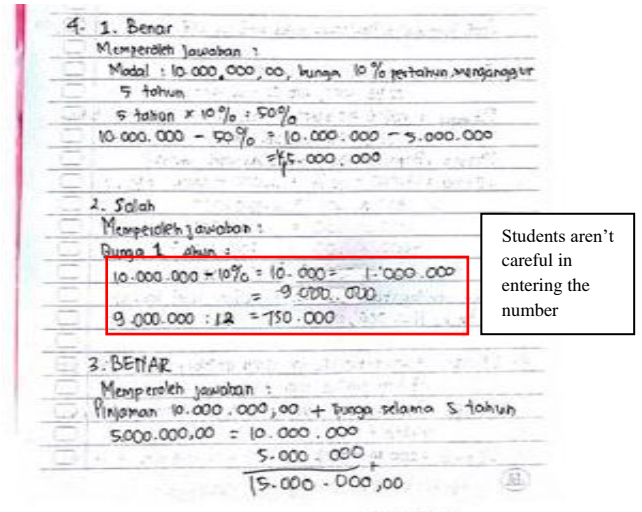 4. 1. Benar
Memperoleh jawaban :
Modal : 10.000.000,00, bunga 10% pertahun, menganggur
5 tahun
5 tahun x 10% : 50%
10.000.000 - 50% = 10.000.000 - 5.000.000
= 5.000.000
2. Salah
Memperoleh jawaban :
Bunga 1 ahun :
10.000.000 - 10% = 10.000 = - 1.000.000
= 9.000.000
9.000.000 : 12 = 750.000
Students aren't
careful in
entering the
number
3. BENAR
Memperoleh jawaban :
Pinjaman 10.000.000,00 + bunga selama 5 tahun
5.000.000,00 = 10.000.000
5.000.000 +
15.000.000,00